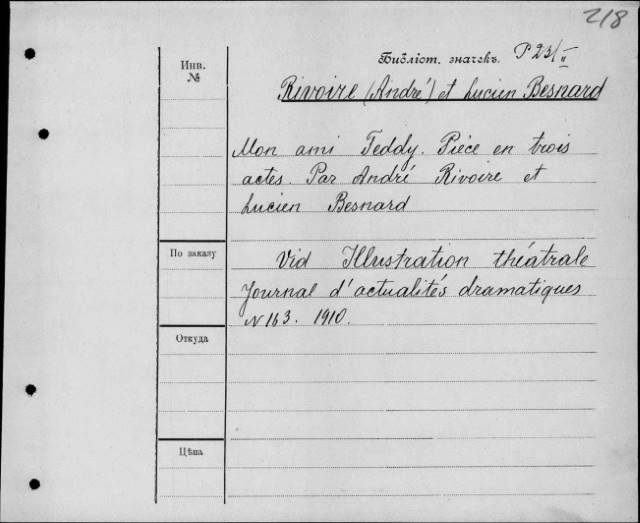 218
Библіот. значекъ. P23/II
Инв.
№
Rivoire (André) et Lucien Besnard
Mon ami Teddy. Pièce en trois
actes. Par André Rivoire et
Lucien Besnard
По заказу
Vid Illustration théâtrale
Journal d'actualités dramatiques
N 163. 1910.
Откуда
Цѣна